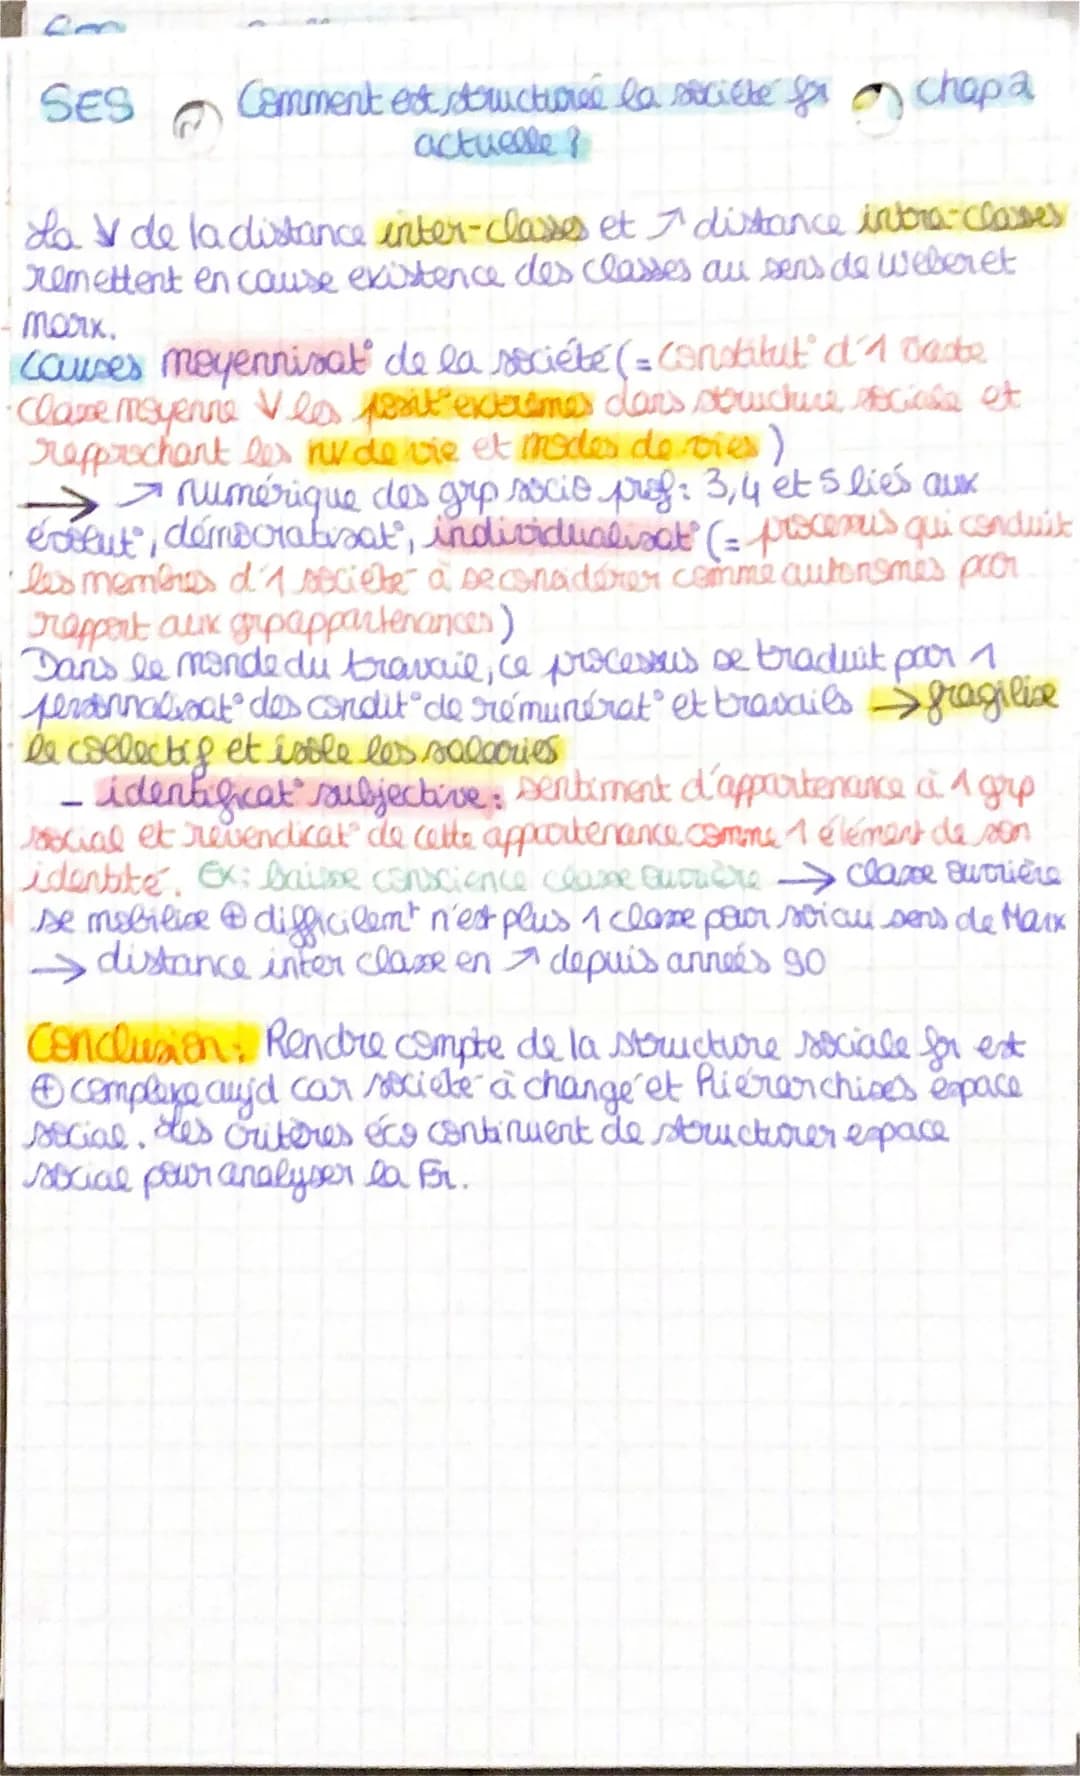 SES Comment est structurée la société fr chap 2
actuelle ?
La ↓ de la distance inter-classes et ↗ distance intra-classes
remettent en cause existence des classes au sens de Weber et
Marx.
Causes moyennisat° de la société (= Constitut° d'1 vaste
classe moyenne ↓ les posit° extrêmes dans structure sociale et
rapprochant les nv de vie et modes de vies)
→ ↗ numérique des grp socio prof: 3,4 et 5 liés aux
évolut°, démocratisat°, individualisat° (= processus qui conduit
les membres d'1 société à se considérer comme autonomes par
rapport aux grp appartenances)
Dans le monde du travail, ce processus se traduit par 1
personnalisat° des condit° de rémunérat° et travails → fragilise
le collectif et isole les salariés
- identificat° subjective: sentiment d'appartenance à 1 grp
social et revendicat° de cette appartenance comme 1 élément de son
identité. Ex: baisse conscience classe ouvrière → classe ouvrière
se mobilise ⊕ difficilemt n'est plus 1 classe pour soi au sens de Marx
→ distance inter classe en ↗ depuis années 90
Conclusion: Rendre compte de la structure sociale fr est
⊕ complexe aujd car société à changé et hiérarchises espace
social. Les critères éco continuent de structurer espace
social pour analyser la Fr.